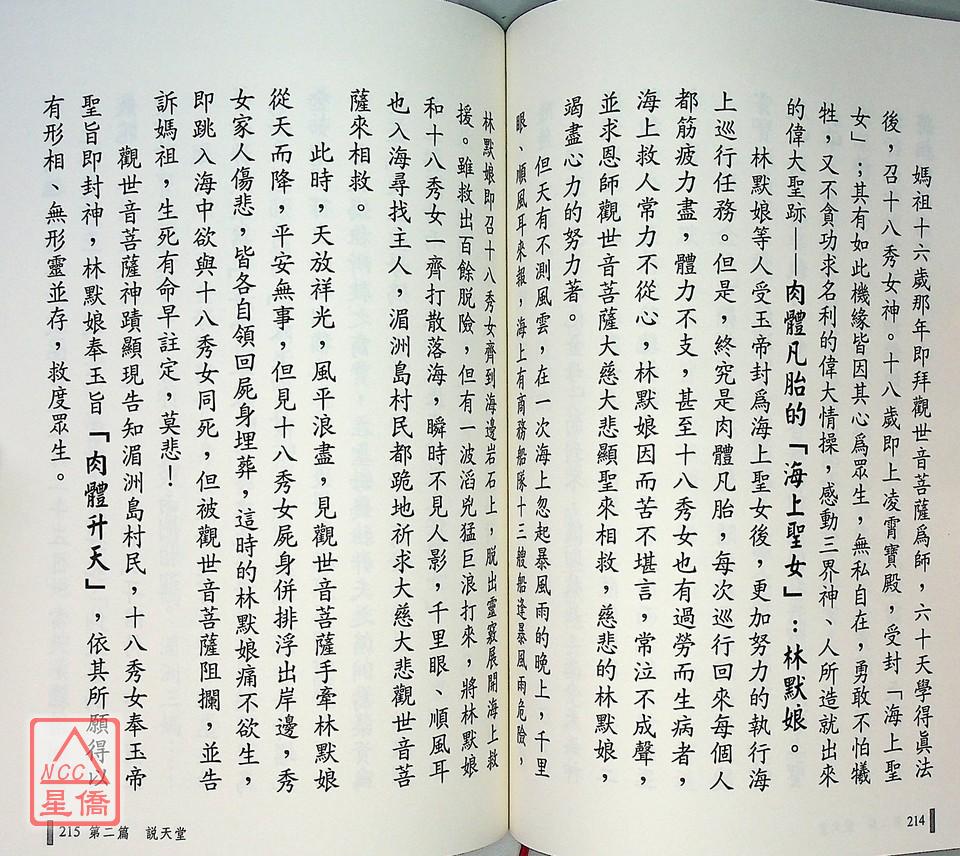 媽祖十六歲那年即拜觀世音菩薩爲師，六十天學得眞法
後，召十八秀女神。十八歲即上凌霄寶殿，受封「海上聖
女」；其有如此機緣皆因其心爲眾生，無私自在，勇敢不怕犧
牲，又不貪功求名利的偉大情操，感動三界神、人所造就出來
的偉大聖跡——肉體凡胎的「海上聖女」：林默娘。
林默娘等人受玉帝封爲海上聖女後，更加努力的執行海
上巡行任務。但是，終究是肉體凡胎，每次巡行回來每個人
都筋疲力盡，體力不支，甚至十八秀女也有過勞而生病者，
海上救人常力不從心，林默娘因而苦不堪言，常泣不成聲，
並求恩師觀世音菩薩大慈大悲顯聖來相救，慈悲的林默娘，
竭盡心力的努力著。
但天有不測風雲，在一次海上忽起暴風雨的晚上，千里
眼、順風耳來報，海上有商務船隊十三艘船逢暴風雨危險，
214
林默娘即召十八秀女齊到海邊岩石上，脱出靈竅展開海上救
援。雖救出百餘脱險，但有一波滔兇猛巨浪打來，將林默娘
和十八秀女一齊打散落海，瞬時不見人影，千里眼、順風耳
也入海尋找主人，湄洲島村民都跪地祈求大慈大悲觀世音菩
薩來相救。
此時，天放祥光，風平浪盡，見觀世音菩薩手牽林默娘
從天而降，平安無事，但見十八秀女屍身併排浮出岸邊，秀
女家人傷悲，皆各自領回屍身埋葬，這時的林默娘痛不欲生，
即跳入海中欲與十八秀女同死，但被觀世音菩薩阻攔，並告
訴媽祖，生死有命早註定，莫悲！
觀世音菩薩神蹟顯現告知湄洲島村民，十八秀女奉玉帝
聖旨即封神，林默娘奉玉旨「肉體升天」，依其所願得以
有形相、無形靈並存，救度眾生。
215 第二篇 説天堂
NCC
星僑